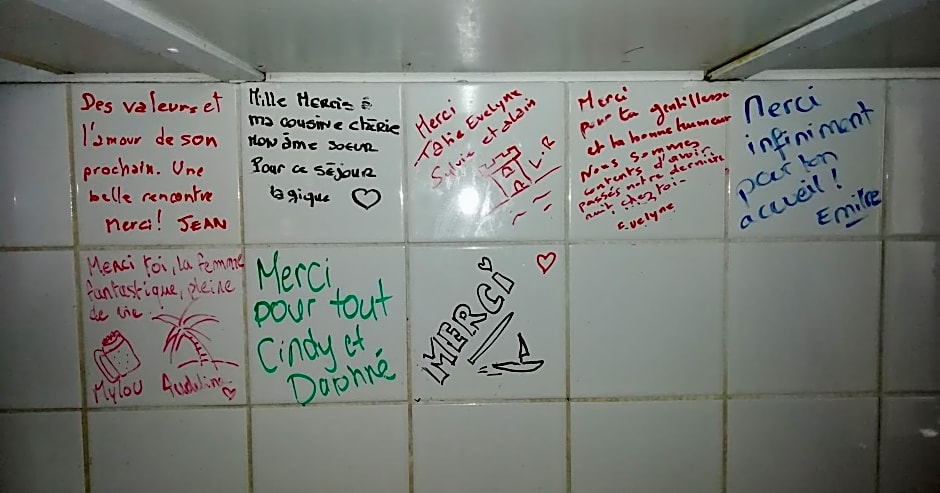 Des valeurs et
l'amour de son
prochain. Une
belle rencontre
Merci! JEAN
Mille Mercis à
ma cousine chérie
mon âme soeur
Pour ce séjour
magique
Merci
Tatie Evelyne
Sylvie et Alain
L.R
Merci
pour ta gentillesse
et ta bonne humeur
Nous sommes
contents d'avoir
passés notre dernière
nuit chez toi
Evelyne
Merci
infiniment
pour ton
accueil!
Emilie
Merci toi, la femme
fantastique, pleine
de vie.
Mylou
Merci
pour tout
Cindy et
Daphné
MERCI